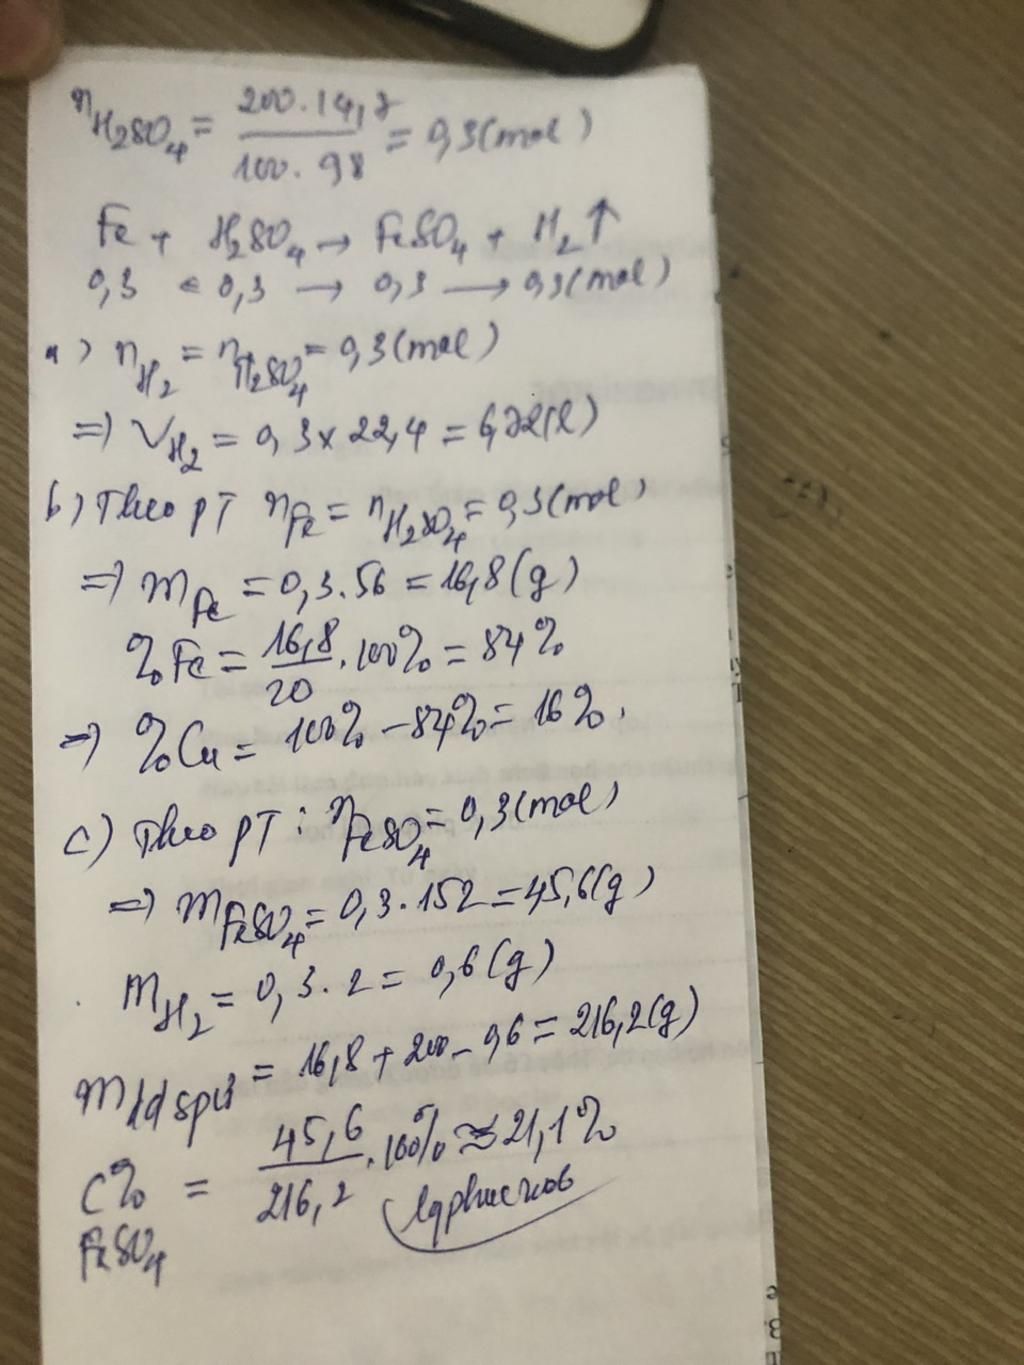 nH₂SO₄ = 200.14,7 / 100.98 = 0,3(mol)
Fe + H₂SO₄ → FeSO₄ + H₂↑
0,3 ← 0,3 → 0,3 → 0,3(mol)
a) nH₂ = nH₂SO₄ = 0,3(mol)
=> VH₂ = 0,3 x 22,4 = 6,72(l)
b) Theo pT nFe = nH₂SO₄ = 0,3(mol)
=> mFe = 0,3.56 = 16,8(g)
%Fe = 16,8/20 . 100% = 84%
=> %Cu = 100% - 84% = 16%.
c) Theo pT : nFeSO₄ = 0,3(mol)
=> mFeSO₄ = 0,3.152 = 45,6(g)
mH₂ = 0,3.2 = 0,6(g)
mddspư = 16,8 + 200 - 0,6 = 216,2(g)
C% FeSO₄ = 45,6/216,2 . 100% ≈ 21,1%